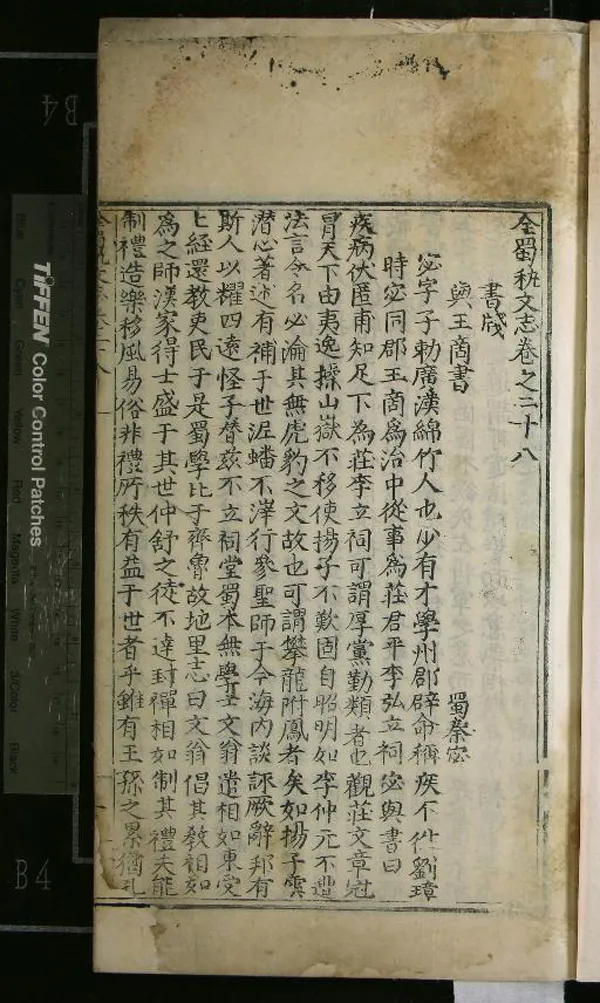 全蜀秇文志卷之二十八
書牋
與王商書
蜀秦宓
宓字子勅廣漢綿竹人也少有才學州郡辟命稱疾不徃劉璋
時宓同郡王商為治中從事為莊君平李弘立祠宓與書曰
疾病伏匿甫知足下為莊李立祠可謂厚黨勤類者也觀莊文章冠
冒天下由夷逸操山嶽不移使揚子不歎固自昭明如李仲元不遭
法言令名必淪其無虎豹之文故也可謂攀龍附鳳者矣如揚子雲
潜心著述有補于世泥蟠不滓行參聖師于今海內談詠厥辭邦有
斯人以耀四遠怪子替茲不立祠堂蜀本無學士文翁遣相如東受
七經還教吏民于是蜀學比于齊魯故地里志曰文翁倡其教相如
為之師漢家得士盛于其世仲舒之徒不達封禪相如制其禮夫能
制禮造樂移風易俗非禮所秩有益于世者乎雖有王孫之累猶孔
B4
B4
TIFFEN Color Control Patches
Blue
Cyan
Green
Yellow
Red
Magenta
White
3/Color
Black